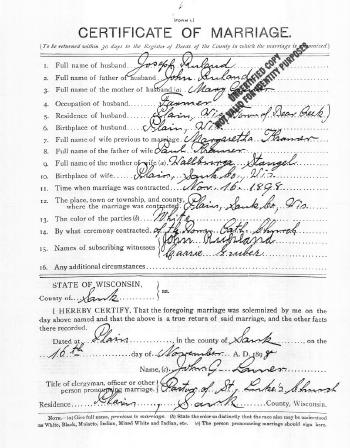 [FORM 1.]
CERTIFICATE OF MARRIAGE.
(To be returned within 30 days to the Register of Deeds of the County in which the marriage is solemnized.)
1. Full name of husband Joseph Ruland
2. Full name of father of husband John Ruland
3. Full name of the mother of husband (a) Mary
4. Occupation of husband Farmer
5. Residence of husband Plain, Wis. (Town of Bear Creek)
6. Birthplace of husband Plain, Wis.
7. Full name of wife previous to marriage Margaretha Kraner
8. Full name of the father of wife Paul Kraner
9. Full name of the mother of wife (a) Wallburga Stangel
10. Birthplace of wife Plain, Sauk Co, Wis
11. Time when marriage was contracted Nov. 16. 1898
12. The place, town or township, and county, where the marriage was contracted Plain, Sauk Co, Wis
13. The color of the parties (b) White
14. By what ceremony contracted of the Rom. Cath. Church
15. Names of subscribing witnesses John Ruhland
Carrie Gruber
16. Any additional circumstances
UNCERTIFIED COPY
NOT VALID FOR IDENTITY PURPOSES
STATE OF WISCONSIN, } ss.
County of Sauk
I HEREBY CERTIFY, That the foregoing marriage was solemnized by me on the
day above named and that the above is a true return of said marriage, and the other facts
there recorded.
Dated at Plain in the county of Sauk on the
16th day of November A. D. 1898
Name, (c) John G. Laurer
Title of clergyman, officer or other person pronouncing marriage Pastor of St. Luke's Church
Residence Plain, Sauk County, Wisconsin.
NOTE.—(a) Give full name, previous to marriage. (b) State the color so distinctly that the race also may be understood
as White, Black, Mulatto, Indian, Mixed White and Indian, etc. (c) The person pronouncing marriage should sign here.